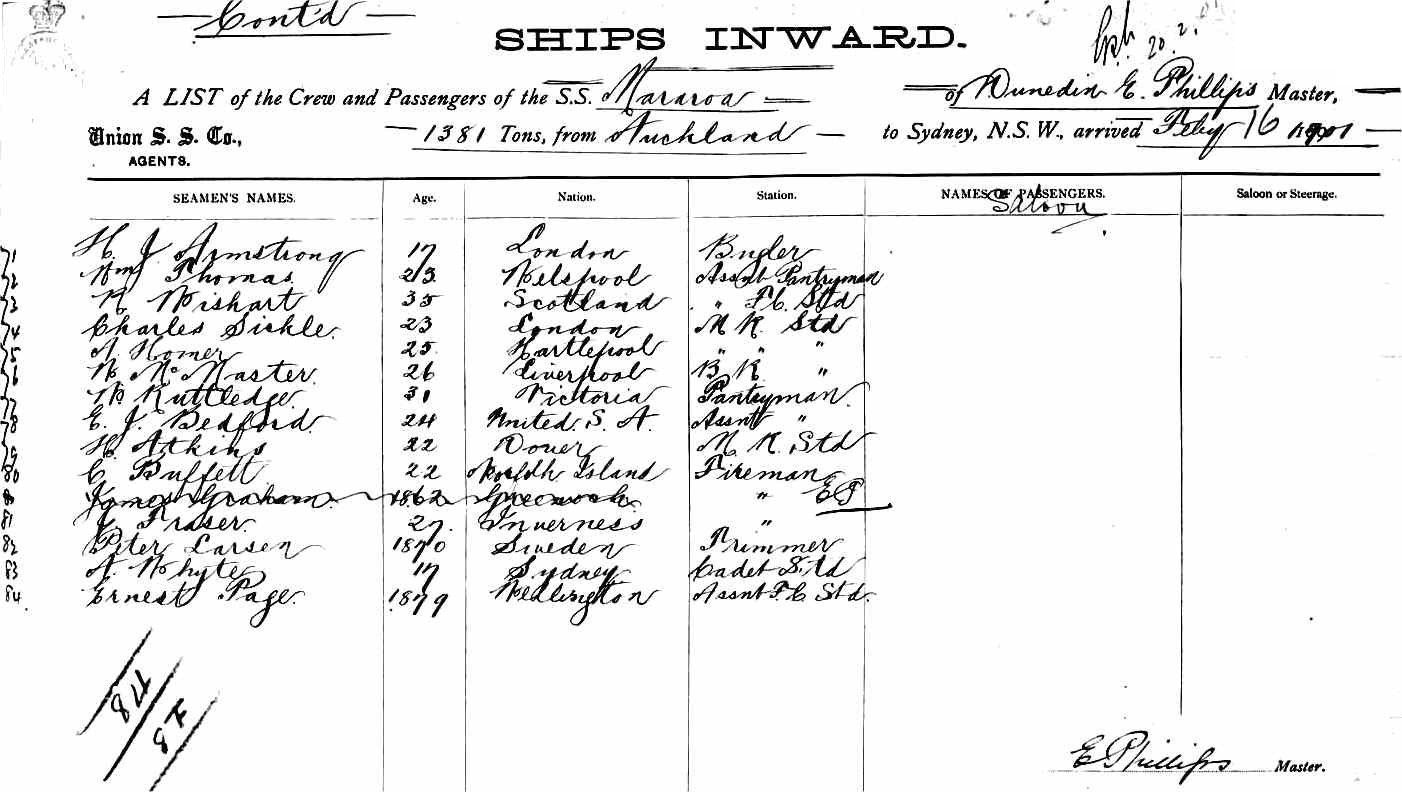 Cont'd
SHIPS INWARD.
20.2.
A LIST of the Crew and Passengers of the S.S. Mararoa of Dunedin E. Phillips Master,
Union S. S. Co., 1381 Tons, from Auckland to Sydney, N.S.W., arrived Feby 16 1901
AGENTS.
SEAMEN'S NAMES. Age. Nation. Station. NAMES OF PASSENGERS. Saloon or Steerage.
Saloon
71 H. J. Armstrong 17 London Butler
72 Wm Thomas 23 Welspool Assnt Pantryman
73 R Wishart 35 Scotland " F.C. Std
74 Charles Sickle. 23 London M R. Std
75 A Homer 25 Hartlepool " " "
76 W McMaster. 26 Liverpool B R "
77 W Ruttledge. 31 Victoria Pantryman.
78 E. J. Bedford. 24 United. S. A. Assnt "
79 H. Atkins 22 Dover M. R. Std
80 C Buffett 22 Norfolk Island Fireman
James Graham. 1862 Greenock " EP
81 J Fraser. 27. Inverness "
82 Peter Larsen 1870 Sweden Trimmer
83 A. Whyte 17 Sydney. Cadet Std
84 Ernest Page. 1879 Wellington Assnt F.C Std.
84
84
E Phillips Master.